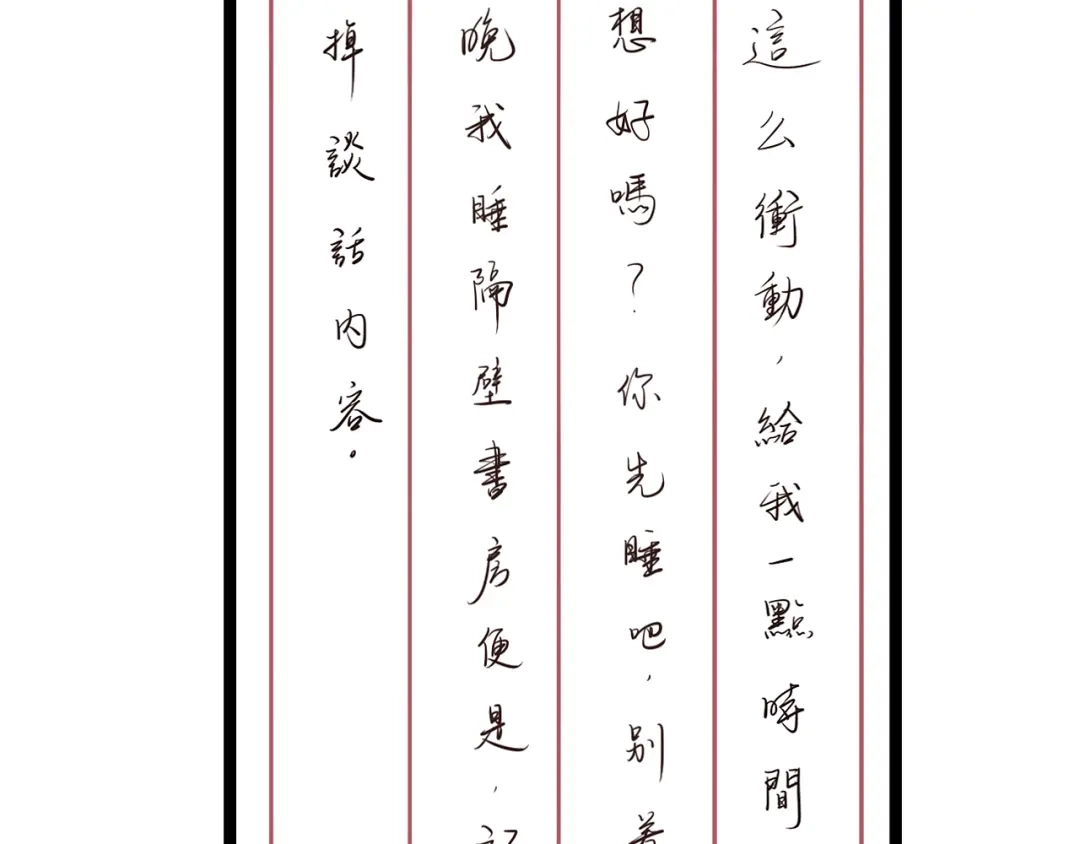 這么衝動，給我一點時間
想好嗎？你先睡吧，别着
晚我睡隔壁書房便是，
掉談話内容。